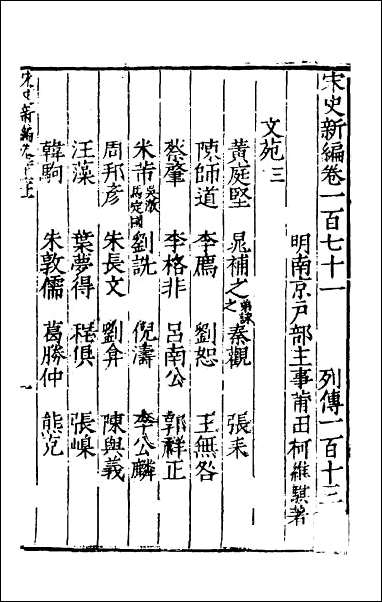 宋史新編卷一百七十一 列傳一百十三
明南京戶部主事莆田柯維騏著
文苑三
黃庭堅 晁補之 弟詠之 秦觀 張耒
陳師道 李廌 劉恕 王無咎
蔡肇 李格非 呂南公 郭祥正
米芾 吳激 馬定國 劉詵 倪濤 李公麟
周邦彥 朱長文 劉弇 陳與義
汪藻 葉夢得 程俱 張嵲
韓駒 朱敦儒 葛勝仲 熊克
宋史新編卷